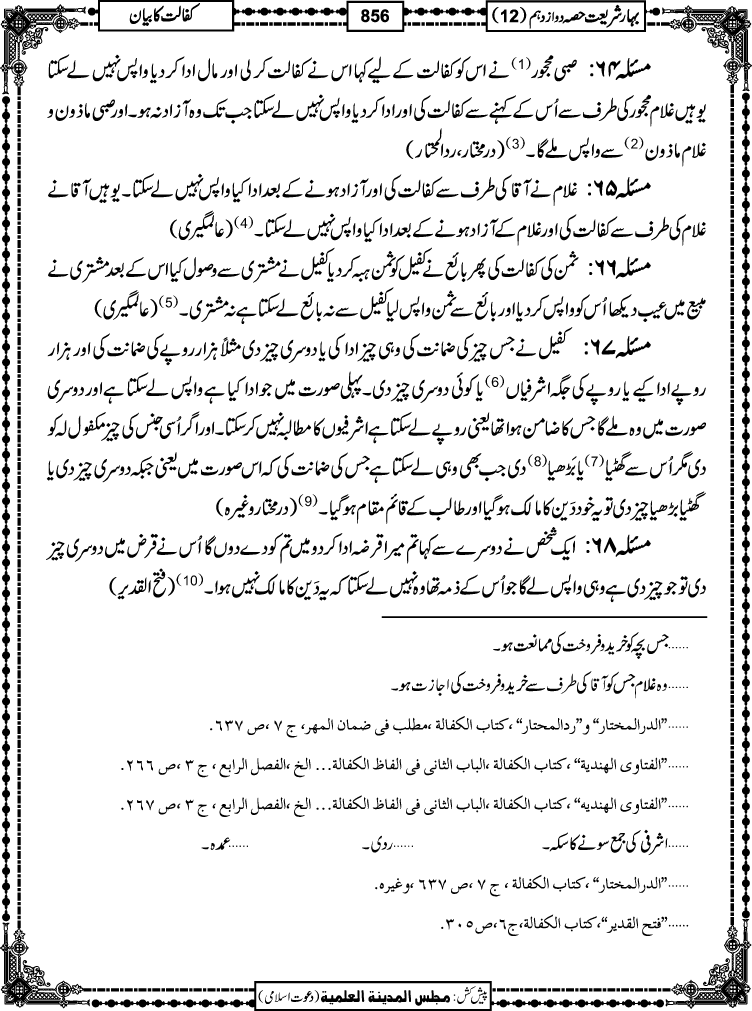 بہارِ شریعت حصہ دوازدہم (12)
856
کفالت کا بیان
مسئلہ ۶۴: صبی محجور (1) نے اس کو کفالت کے لیے کہا اس نے کفالت کر لی اور مال ادا کر دیا واپس نہیں لے سکتا
یوہیں غلام محجور کی طرف سے اُس کے کہنے سے کفالت کی اور ادا کر دیا واپس نہیں لے سکتا جب تک وہ آزاد نہ ہو۔ اور صبی ماذون و
غلام ماذون (2) سے واپس ملے گا۔ (3) (درمختار، ردالمحتار)
مسئلہ ۶۵: غلام نے آقا کی طرف سے کفالت کی اور آزاد ہونے کے بعد ادا کیا واپس نہیں لے سکتا۔ یوہیں آقا نے
غلام کی طرف سے کفالت کی اور غلام کے آزاد ہونے کے بعد ادا کیا واپس نہیں لے سکتا۔ (4) (عالمگیری)
مسئلہ ۶۶: ثمن کی کفالت کی پھر بائع نے کفیل کو ثمن ہبہ کر دیا کفیل نے مشتری سے وصول کیا اس کے بعد مشتری نے
مبیع میں عیب دیکھا اُس کو واپس کر دیا اور بائع سے ثمن واپس لیا کفیل سے نہ بائع لے سکتا ہے نہ مشتری۔ (5) (عالمگیری)
مسئلہ ۶۷: کفیل نے جس چیز کی ضمانت کی وہی چیز ادا کی یا دوسری چیز دی مثلاً ہزار روپے کی ضمانت کی اور ہزار
روپے ادا کیے یا روپے کی جگہ اشرفیاں (6) یا کوئی دوسری چیز دی۔ پہلی صورت میں جو ادا کیا ہے واپس لے سکتا ہے اور دوسری
صورت میں وہ ملے گا جس کا ضامن ہوا تھا یعنی روپے لے سکتا ہے اشرفیوں کا مطالبہ نہیں کر سکتا۔ اور اگر اُسی جنس کی چیز مکفول لہ کو
دی مگر اُس سے گھٹیا (7) یا بڑھیا (8) دی جب بھی وہی لے سکتا ہے جس کی ضمانت کی کہ اس صورت میں یعنی جبکہ دوسری چیز دی یا
گھٹیا بڑھیا چیز دی تو یہ خود دَین کا مالک ہو گیا اور طالب کے قائم مقام ہو گیا۔ (9) (درمختار وغیرہ)
مسئلہ ۶۸: ایک شخص نے دوسرے سے کہا تم میرا قرضہ ادا کر دو میں تم کو دے دوں گا اُس نے قرض میں دوسری چیز
دی تو جو چیز دی ہے وہی واپس لے گا جو اُس کے ذمہ تھا وہ نہیں لے سکتا کہ یہ دَین کا مالک نہیں ہوا۔ (10) (فتح القدیر)
......جس بچہ کو خرید و فروخت کی ممانعت ہو۔
......وہ غلام جس کو آقا کی طرف سے خرید و فروخت کی اجازت ہو۔
......”الدرالمختار“ و”ردالمحتار“ ،کتاب الکفالة ،مطلب فی ضمان المهر، ج ٧ ،ص ٦٣٧.
......”الفتاوی الهندیة“ ،کتاب الکفالة ،الباب الثانی فی الفاظ الکفالة... الخ ،الفصل الرابع ، ج ٣ ،ص ٢٦٦.
......”الفتاوی الهندیه“ ،کتاب الکفالة ،الباب الثانی فی الفاظ الکفالة... الخ ،الفصل الرابع ، ج ٣ ،ص ٢٦٧.
......اشرفی کی جمع سونے کا سکہ۔ ......ردی۔ ......عمدہ۔
......”الدرالمختار“ ،کتاب الکفالة ، ج ٧ ،ص ٦٣٧ ،وغیرہ.
......”فتح القدیر“،کتاب الکفالة،ج٦،ص٣٠٥.
پیش کش: مجلس المدینة العلمیة (دعوتِ اسلامی)